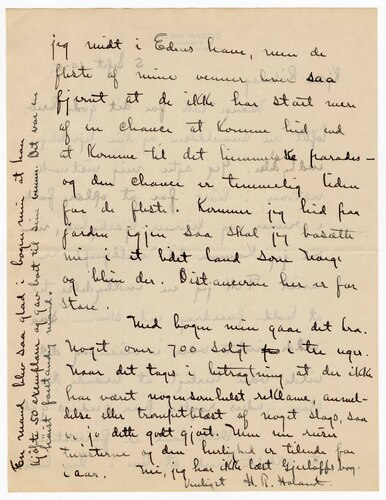 jeg midt i Edens have, men de
fleste af mine venner bor saa
fjernt at de ikke har stort mere
af en chance at komme hid end
at komme til det himmelske parades-
og den chance er temmelig liden
for de fleste. Kommer jeg hid fra
jorden igjen saa skal jeg bosætte
mig i et lidet land som Norge
og blive der. Distancerne her er for
store.
Med bogen min gaar det bra.
Noget over 700 solgt i tre uger.
Naar det tages i betragtning at der ikke
har været nogensomhelst reklame, anmel-
delse eller trompetblæst af noget slags, saa
er jo dette godt gjort. Men nu
og den herlighed er tilende for
i aar. Nei, jeg har ikke læst Gjerløffs bog.
Venligst H. R. Holand.
En mand blev saa glad i bogen min at han
kjøbte 50 exemplarer og gav bort til sine venner. Det var en
forstandig mand.